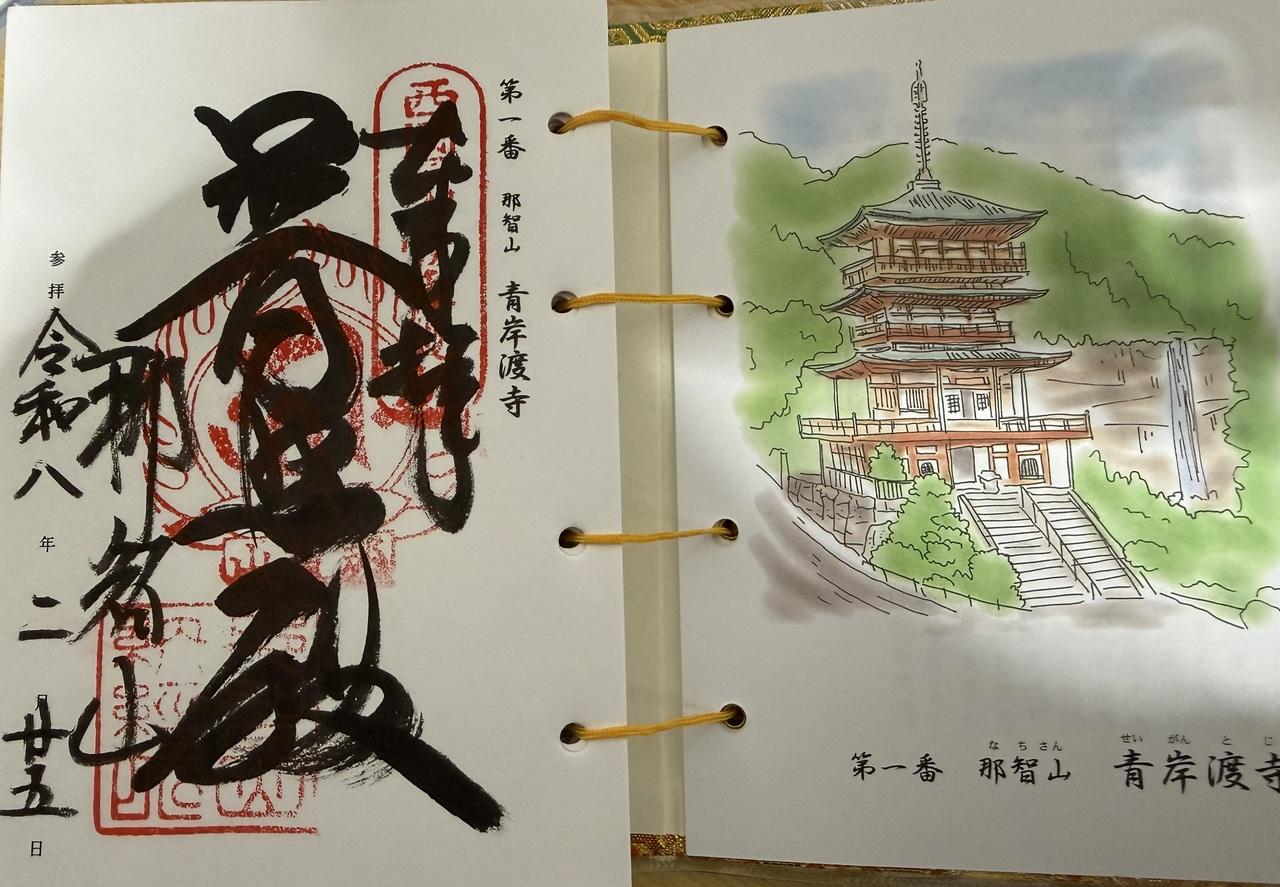 第一番 那智山 青岸渡寺
奉拝
普照殿
那智山
参拝 令和八年二月廿五日
なちさん せいがんとじ
第一番 那智山 青岸渡寺